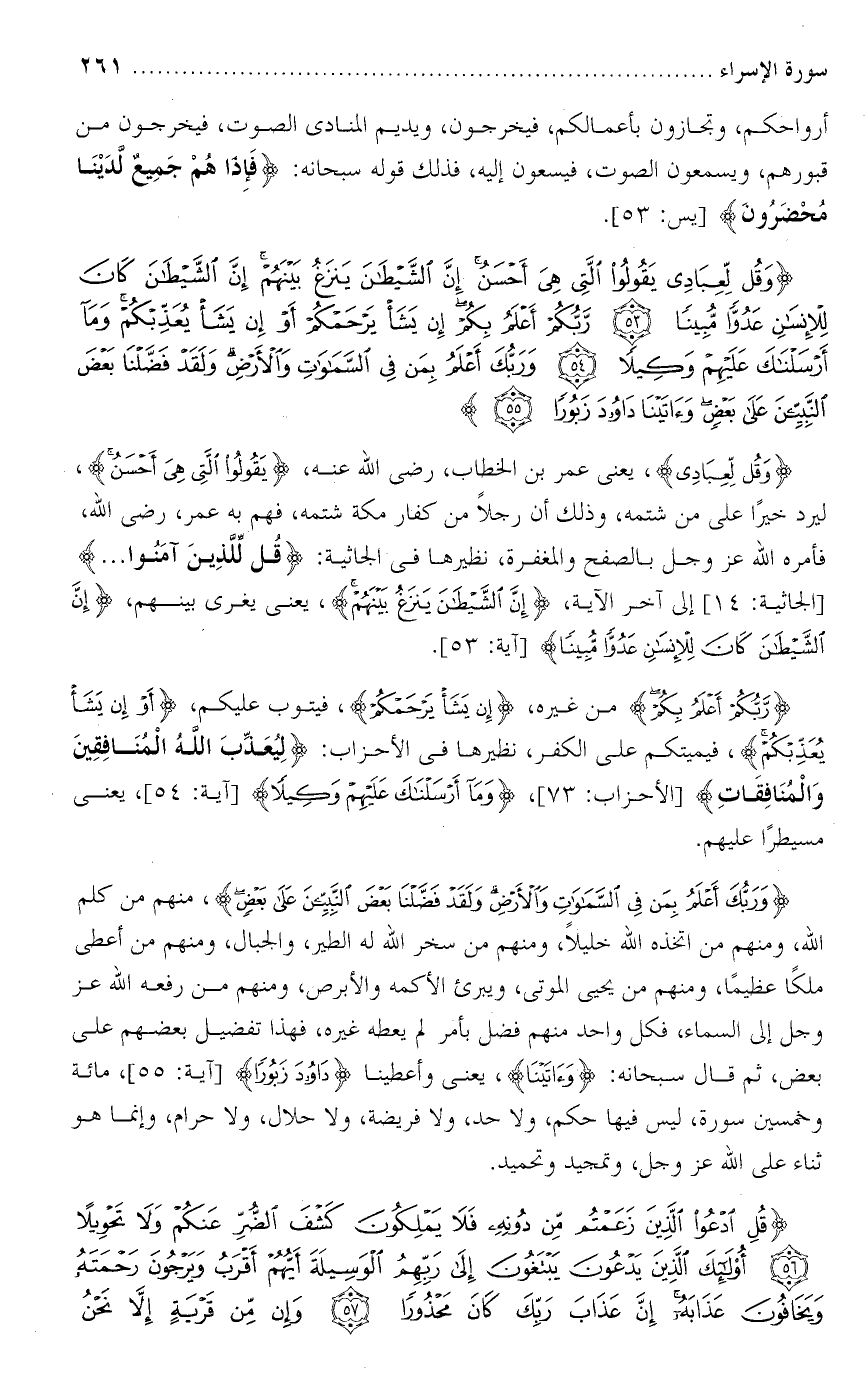 سورة الإسراء ........................................................................ ٢٦١
أرواحكم، وتجازون بأعمالكم، فيخرجون، ويديم المنادى الصوت، فيخرجون من
قبورهم، ويسمعون الصوت، فيسعون إليه، فذلك قوله سبحانه: ﴿فَإِذَا هُمْ جَمِيعٌ لَّدَيْنَا
مُحْضَرُونَ﴾ [يس: ٥٣].
﴿وَقُل لِّعِبَادِى يَقُولُوا۟ ٱلَّتِى هِىَ أَحْسَنُ ۚ إِنَّ ٱلشَّيْطَٰنَ يَنزَغُ بَيْنَهُمْ ۚ إِنَّ ٱلشَّيْطَٰنَ كَانَ
لِلْإِنسَٰنِ عَدُوًّا مُّبِينًا ۝٥٣ رَّبُّكُمْ أَعْلَمُ بِكُمْ ۖ إِن يَشَأْ يَرْحَمْكُمْ أَوْ إِن يَشَأْ يُعَذِّبْكُمْ ۚ وَمَآ
أَرْسَلْنَٰكَ عَلَيْهِمْ وَكِيلًا ۝٥٤ وَرَبُّكَ أَعْلَمُ بِمَن فِى ٱلسَّمَٰوَٰتِ وَٱلْأَرْضِ ۗ وَلَقَدْ فَضَّلْنَا بَعْضَ
ٱلنَّبِيِّـۧنَ عَلَىٰ بَعْضٍ ۖ وَءَاتَيْنَا دَاوُۥدَ زَبُورًا ۝٥٥ ﴾
﴿وَقُل لِّعِبَادِى﴾، يعنى عمر بن الخطاب، رضى الله عنه، ﴿يَقُولُوا۟ ٱلَّتِى هِىَ أَحْسَنُ ۚ﴾،
ليرد خيرًا على من شتمه، وذلك أن رجلاً من كفار مكة شتمه، فهم به عمر، رضى الله،
فأمره الله عز وجل بالصفح والمغفرة، نظيرها فى الجاثية: ﴿قُل لِّلَّذِينَ آمَنُوا...﴾
[الجاثية: ١٤] إلى آخر الآية، ﴿إِنَّ ٱلشَّيْطَٰنَ يَنزَغُ بَيْنَهُمْ ۚ﴾، يعنى يغرى بينهم، ﴿إِنَّ
ٱلشَّيْطَٰنَ كَانَ لِلْإِنسَٰنِ عَدُوًّا مُّبِينًا﴾ [آية: ٥٣].
﴿رَّبُّكُمْ أَعْلَمُ بِكُمْ ۖ﴾ من غيره، ﴿إِن يَشَأْ يَرْحَمْكُمْ﴾، فيتوب عليكم، ﴿أَوْ إِن يَشَأْ
يُعَذِّبْكُمْ ۚ﴾، فيميتكم على الكفر، نظيرها فى الأحزاب: ﴿لِيُعَذِّبَ اللَّهُ الْمُنَافِقِينَ
وَالْمُنَافِقَاتِ﴾ [الأحزاب: ٧٣]، ﴿وَمَآ أَرْسَلْنَٰكَ عَلَيْهِمْ وَكِيلًا﴾ [آية: ٥٤]، يعنى
مسيطرًا عليهم.
﴿وَرَبُّكَ أَعْلَمُ بِمَن فِى ٱلسَّمَٰوَٰتِ وَٱلْأَرْضِ ۗ وَلَقَدْ فَضَّلْنَا بَعْضَ ٱلنَّبِيِّـۧنَ عَلَىٰ بَعْضٍ ۖ﴾، منهم من كلم
الله، ومنهم من اتخذه الله خليلاً، ومنهم من سخر الله له الطير، والجبال، ومنهم من أعطى
ملكًا عظيمًا، ومنهم من يحيى الموتى، ويبرئ الأكمه والأبرص، ومنهم من رفعه الله عز
وجل إلى السماء، فكل واحد منهم فضل بأمر لم يعطه غيره، فهذا تفضيل بعضهم على
بعض، ثم قال سبحانه: ﴿وَءَاتَيْنَا﴾، يعنى وأعطينا ﴿دَاوُۥدَ زَبُورًا﴾ [آية: ٥٥]، مائة
وخمسين سورة، ليس فيها حكم، ولا حد، ولا فريضة، ولا حلال، ولا حرام، وإنما هو
ثناء على الله عز وجل، وتمجيد وتحميد.
﴿قُلِ ٱدْعُوا۟ ٱلَّذِينَ زَعَمْتُم مِّن دُونِهِۦ فَلَا يَمْلِكُونَ كَشْفَ ٱلضُّرِّ عَنكُمْ وَلَا تَحْوِيلًا
۝٥٦ أُو۟لَٰٓئِكَ ٱلَّذِينَ يَدْعُونَ يَبْتَغُونَ إِلَىٰ رَبِّهِمُ ٱلْوَسِيلَةَ أَيُّهُمْ أَقْرَبُ وَيَرْجُونَ رَحْمَتَهُۥ
وَيَخَافُونَ عَذَابَهُۥٓ ۚ إِنَّ عَذَابَ رَبِّكَ كَانَ مَحْذُورًا ۝٥٧ وَإِن مِّن قَرْيَةٍ إِلَّا نَحْنُ